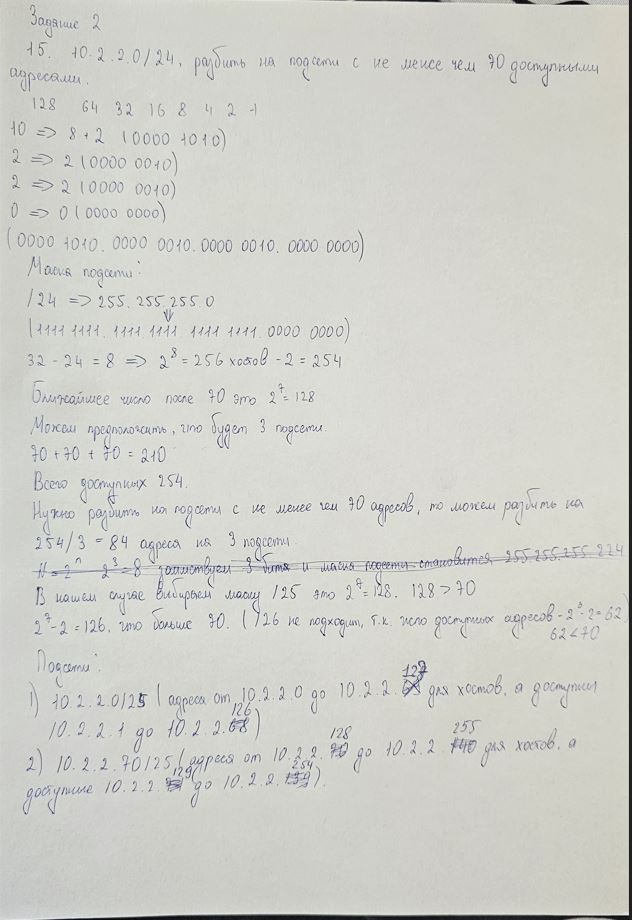 Задание 2
15. 10.2.2.0/24, разбить на подсети с не менее чем 70 доступными
адресами.
128 64 32 16 8 4 2 1
10 => 8+2 (0000 1010)
2 => 2 (0000 0010)
2 => 2 (0000 0010)
0 => 0 (0000 0000)
(0000 1010. 0000 0010. 0000 0010. 0000 0000)
Маска подсети:
/24 => 255.255.255.0
(1111 1111. 1111 1111. 1111 1111. 0000 0000)
32 - 24 = 8 => 2^8 = 256 хостов - 2 = 254
Ближайшее число после 70 это 2^7 = 128
Можем предположить, что будет 3 подсети.
70 + 70 + 70 = 210
Всего доступных 254.
Нужно разбить на подсети с не менее чем 70 адресов, то можем разбить на
254/3 = 84 адреса на 3 подсети.
N = 2^n 2^3 = 8 заимствуем 3 бита и маска подсети становится 255.255.255.224
В нашем случае выбираем маску /25 это 2^7 = 128. 128 > 70
2^7 - 2 = 126, что больше 70. (/26 не подходит, т.к. число доступных адресов - 2 - 2 = 62
62 < 70
Подсети:
1) 10.2.2.0/25 (адреса от 10.2.2.0 до 10.2.2.127 для хостов, а доступны
10.2.2.1 до 10.2.2.126)
2) 10.2.2.70/25 (адреса от 10.2.2.128 до 10.2.2.255 для хостов, а
доступные 10.2.2.129 до 10.2.2.254).